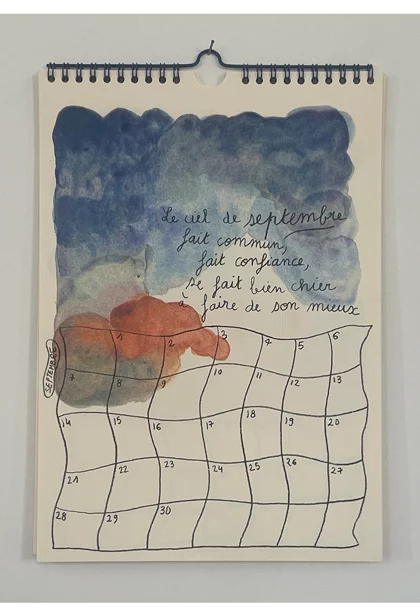 Le ciel de septembre
fait commun,
fait confiance,
se fait bien chier
à faire de son mieux
SEPTEMBRE
1 2 3 4 5 6
7 8 9 10 11 12 13
14 15 16 17 18 19 20
21 22 23 24 25 26 27
28 29 30